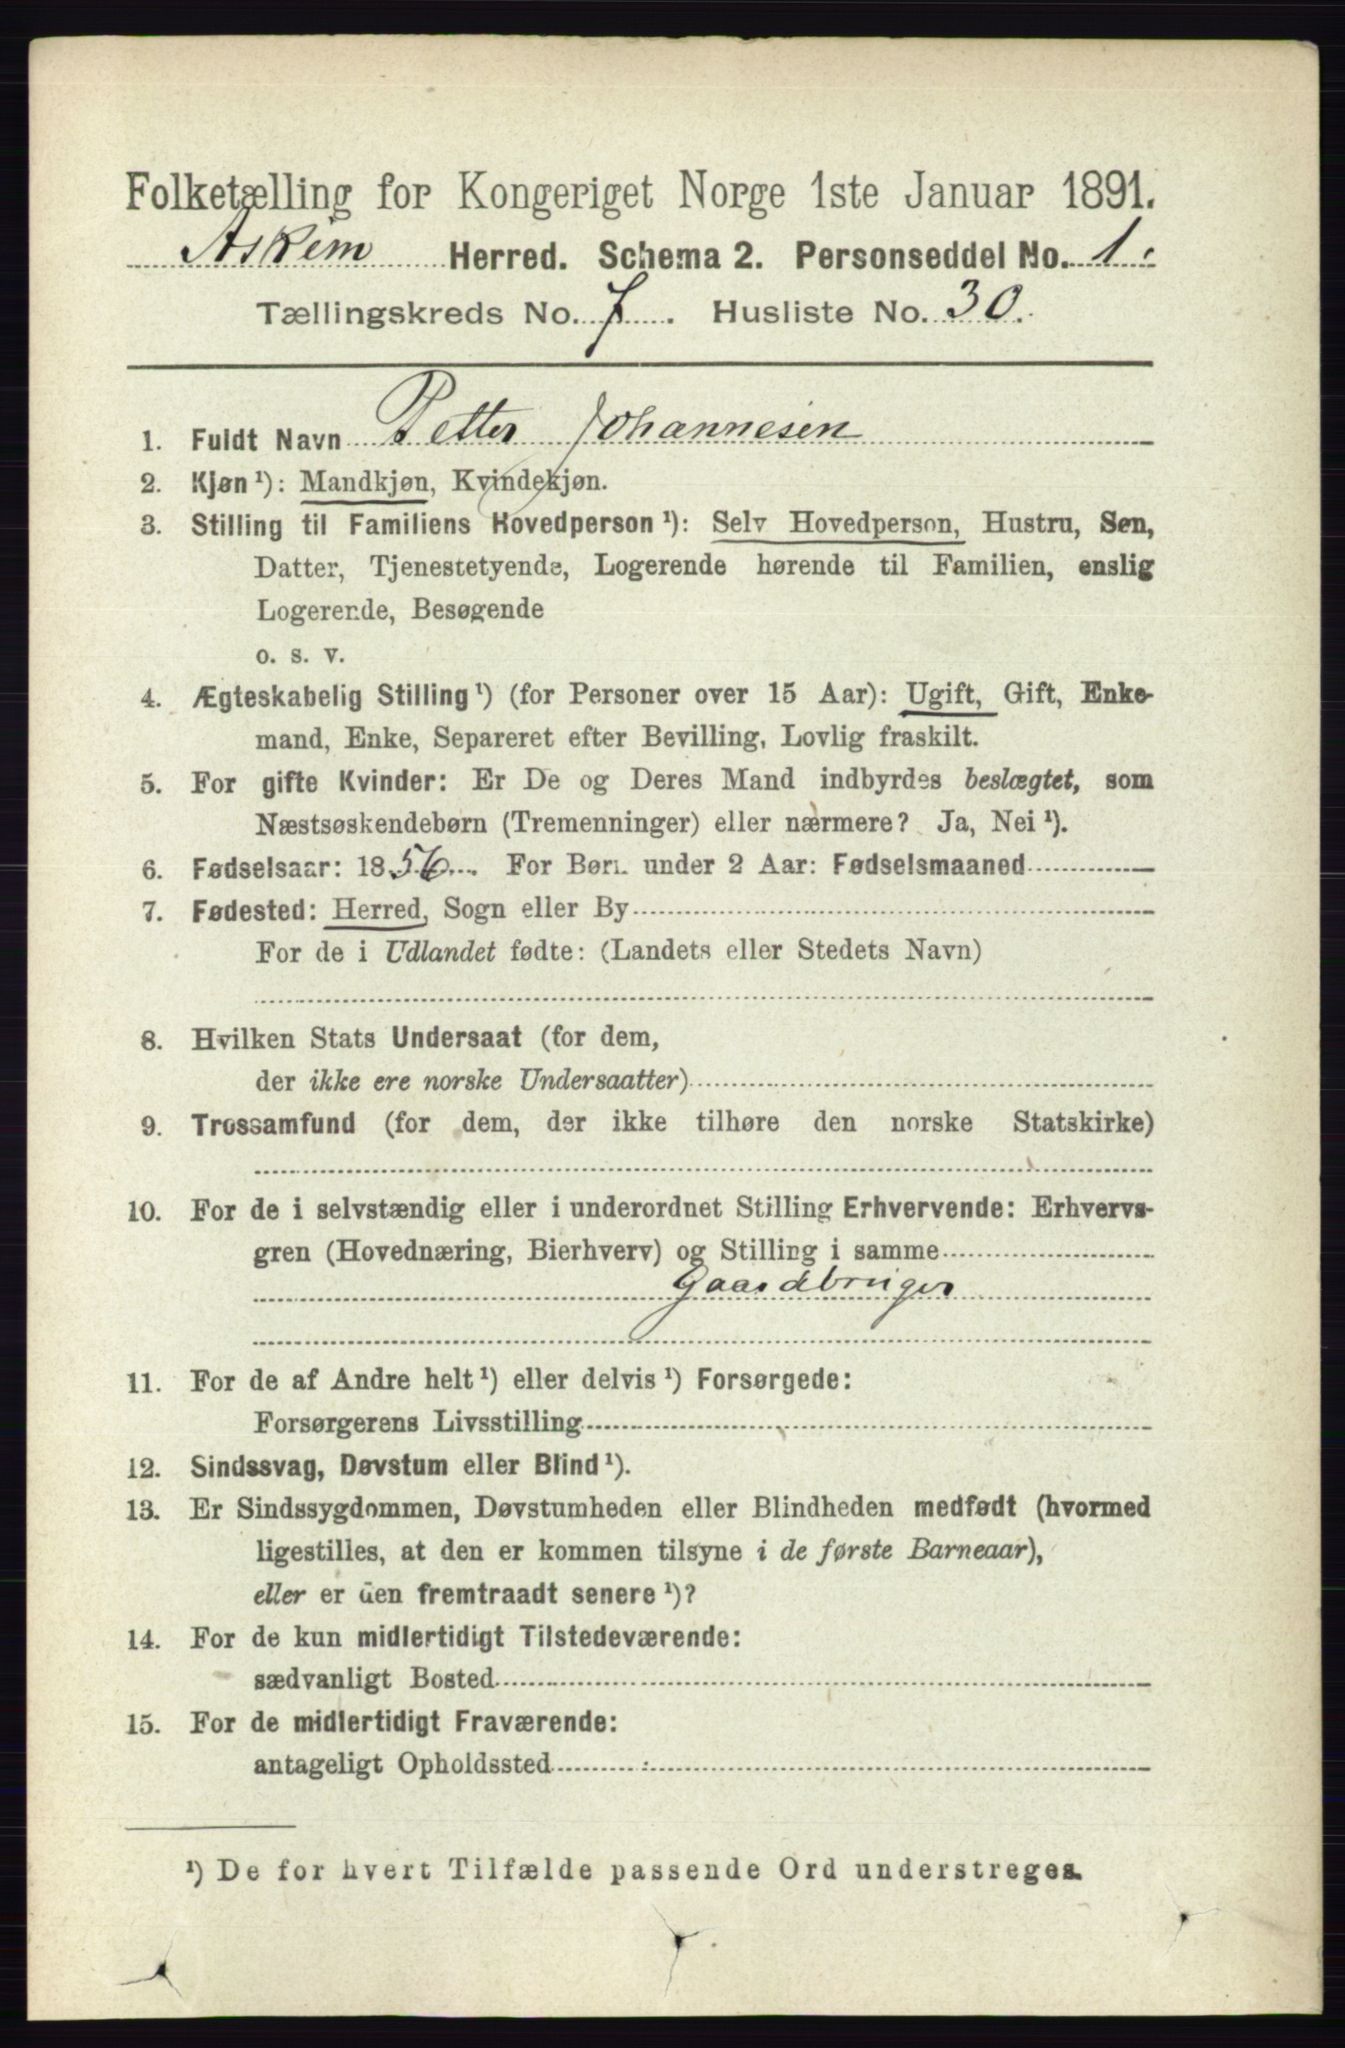 Folketælling for Kongeriget Norge 1ste Januar 1891.
Askim Herred. Schema 2. Personseddel No. 1.
Tællingskreds No. 7. Husliste No. 30.
1. Fuldt Navn Petter Johannesen
2. Kjøn¹): Mandkjøn, Kvindekjøn.
3. Stilling til Familiens Hovedperson¹): Selv Hovedperson, Hustru, Søn,
Datter, Tjenestetyende, Logerende hørende til Familien, enslig
Logerende, Besøgende
o. s. v.
4. Ægteskabelig Stilling¹) (for Personer over 15 Aar): Ugift, Gift, Enke-
mand, Enke, Separeret efter Bevilling, Lovlig fraskilt.
5. For gifte Kvinder: Er De og Deres Mand indbyrdes beslægtet, som
Næstsøskendebørn (Tremenninger) eller nærmere? Ja, Nei¹).
6. Fødselsaar: 1856. For Børn under 2 Aar: Fødselsmaaned
7. Fødested: Herred, Sogn eller By
For de i Udlandet fødte: (Landets eller Stedets Navn)
8. Hvilken Stats Undersaat (for dem,
der ikke ere norske Undersaatter)
9. Trossamfund (for dem, der ikke tilhøre den norske Statskirke)
10. For de i selvstændig eller i underordnet Stilling Erhvervende: Erhvervs-
gren (Hovednæring, Bierhverv) og Stilling i samme
Gaardbruger
11. For de af Andre helt¹) eller delvis¹) Forsørgede:
Forsørgerens Livsstilling
12. Sindssvag, Døvstum eller Blind¹).
13. Er Sindssygdommen, Døvstumheden eller Blindheden medfødt (hvormed
ligestilles, at den er kommen tilsyne i de første Barneaar),
eller er den fremtraadt senere¹)?
14. For de kun midlertidigt Tilstedeværende:
sædvanligt Bosted
15. For de midlertidigt Fraværende:
antageligt Opholdssted
¹) De for hvert Tilfælde passende Ord understreges.